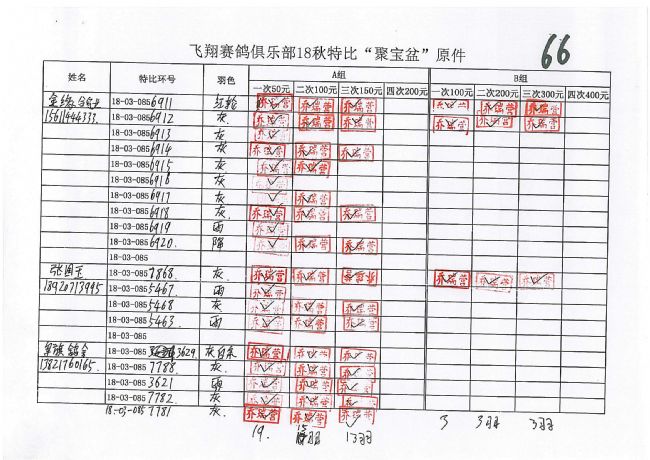 飞翔赛鸽俱乐部18秋特比“聚宝盆”原件 66
姓名 特比环号 羽色 A组 B组
一次50元 二次100元 三次150元 四次200元 一次100元 二次200元 三次300元 四次400元
18-03-0856911 乔瑞营 乔瑞营 乔瑞营 乔瑞营 乔瑞营
15611444333. 18-03-0856912 灰 乔瑞营 乔瑞营 乔瑞营 乔瑞营 乔瑞营 乔瑞营
18-03-0856913 灰
18-03-0856914 灰 乔瑞营 乔瑞营 乔瑞营
18-03-0856915 灰 乔瑞营 乔瑞营
18-03-0856916 灰
18-03-0856917 灰
18-03-0856918 灰 乔瑞营 乔瑞营 乔瑞营
18-03-0856919 雨
18-03-0856920. 乔瑞营 乔瑞营
18-03-085
张国玉 18-03-0857868. 灰 乔瑞营 乔瑞营 乔瑞营 乔瑞营 乔瑞营
18920713995 18-03-0855467 雨 乔瑞营
18-03-0855468 灰 乔瑞营 乔瑞营 乔瑞营
18-03-0855463 雨 乔瑞营 乔瑞营 乔瑞营
18-03-085
18-03-085 3629 乔瑞营 乔瑞营 乔瑞营
13821760165. 18-03-0857788 灰 乔瑞营 乔瑞营 乔瑞营
18-03-0853621 雨 乔瑞营 乔瑞营 乔瑞营
18-03-0857782 灰 乔瑞营 乔瑞营 乔瑞营
18-03-0857781 灰 乔瑞营 乔瑞营 乔瑞营
19. 15 13羽 3 3羽 3羽